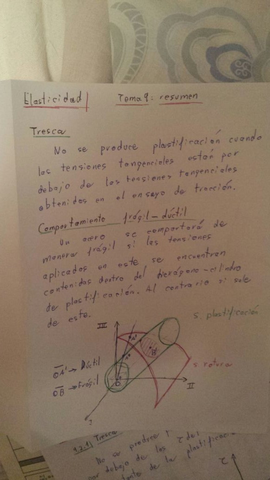 Elasticidad Tema 9: resumen
Tresca
No se produce plastificación cuando
las tensiones tangenciales están por
debajo de las tensiones tangenciales
obtenidas en el ensayo de tracción.
Comportamiento frágil-dúctil
Un acero se comportará de
manera frágil si las tensiones
aplicadas en este se encuentran
contenidas dentro del hexágono-cilindro
de plastificación. Al contrario si sale
de este.
III
s. plastificación
OA → Dúctil
OB → Frágil
s. rotura
II
I
Tresca
No se produce
por debajo de
de la plastific
τ